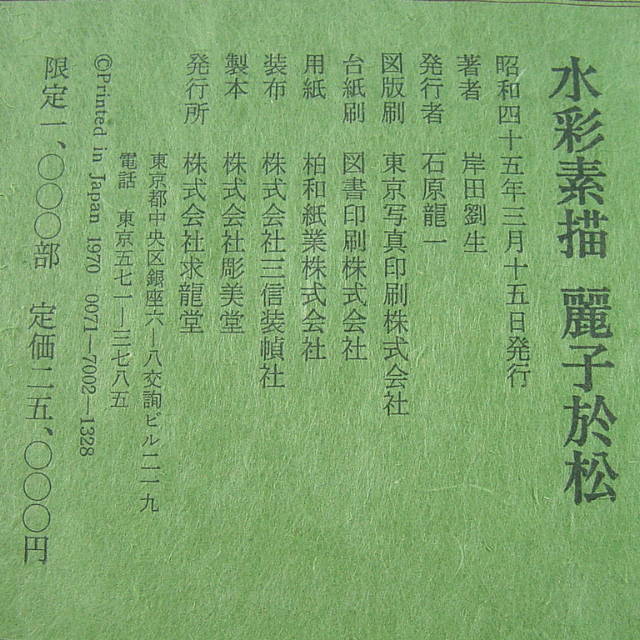 水彩素描 麗子於松
昭和四十五年三月十五日発行
著者 岸田劉生
発行者 石原龍一
図版刷 東京写真印刷株式会社
台紙刷 図書印刷株式会社
用紙 柏和紙業株式会社
装布 株式会社三信装幀社
製本 株式会社彫美堂
発行所 株式会社求龍堂
東京都中央区銀座六—八交詢ビル二一九
電話 東京五七一—三七八五
©Printed in Japan 1970 0071—7002—1328
限定一、〇〇〇部 定価二五、〇〇〇円